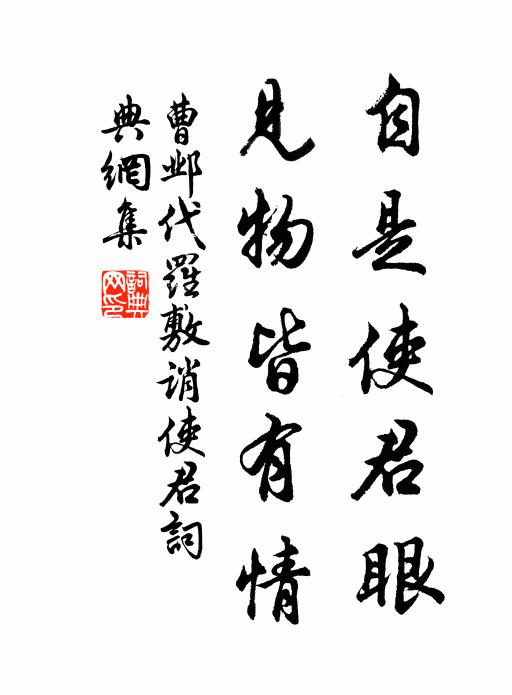 自是使君眼
見物皆有情
曹邺代羅敷誚使君詞
典網集
詞典網印